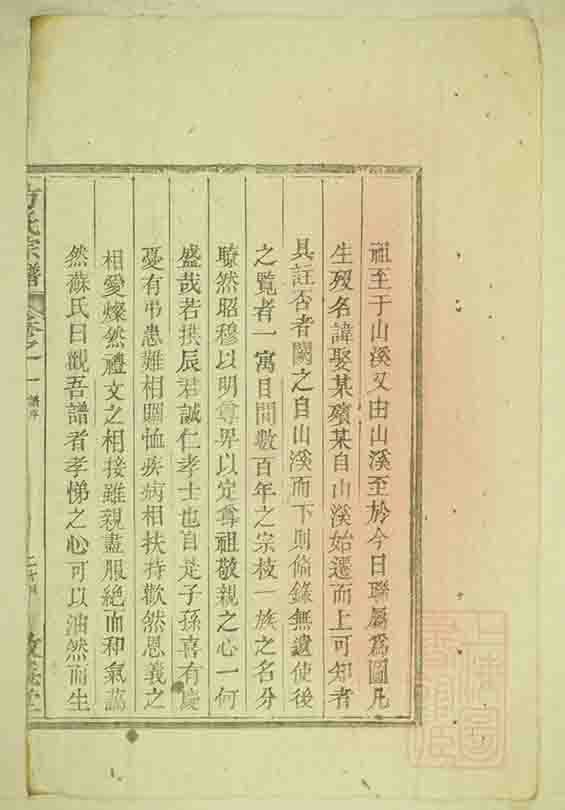 祖至于山溪又由山溪至於今日聯屬爲圖凡
生歿名諱娶某殯某自山溪始遷而上可知者
具註否者闕之自山溪而下則備錄無遺使後
之覽者一寓目間數百年之宗枝一族之名分
瞭然昭穆以明尊卑以定尊祖敬親之心一何
盛哉若拱辰君誠仁孝士也自是子孫喜有慶
憂有弔患難相賙恤疾病相扶持歡然恩義之
相愛燦然禮文之相接雖親盡服絕而和氣藹
然蘇氏曰觀吾譜者孝悌之心可以油然而生
方氏宗譜
卷之一
譜序